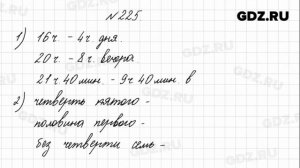 GDZ.RU
№225
1) 16 ч. – 4 ч. дня
20 ч. – 8 ч. вечора
21 ч 40 мин. – 9 ч 40 мин. в
2) четверть пятого –
половина первого –
без четверти семь –